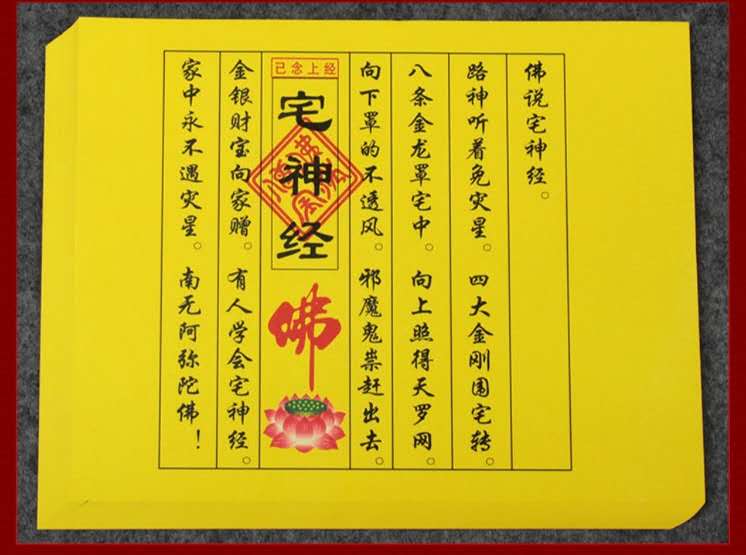 佛说宅神经。
路神听着免灾星。四大金刚围宅转。
八条金龙罩宅中。向上照得天罗网。
向下罩的不透风。邪魔鬼祟赶出去。
已念上经
宅神经
佛
金银财宝向家赠。有人学会宅神经。
家中永不遇灾星。南无阿弥陀佛！